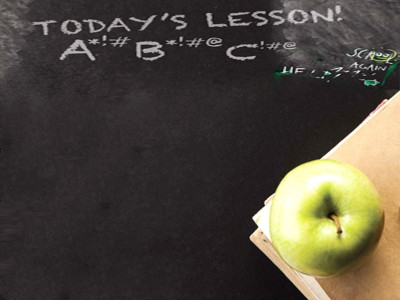 TODAY'S LESSON!
A*!# B*!#@ C*!#@
SCHOOL
AGAIN